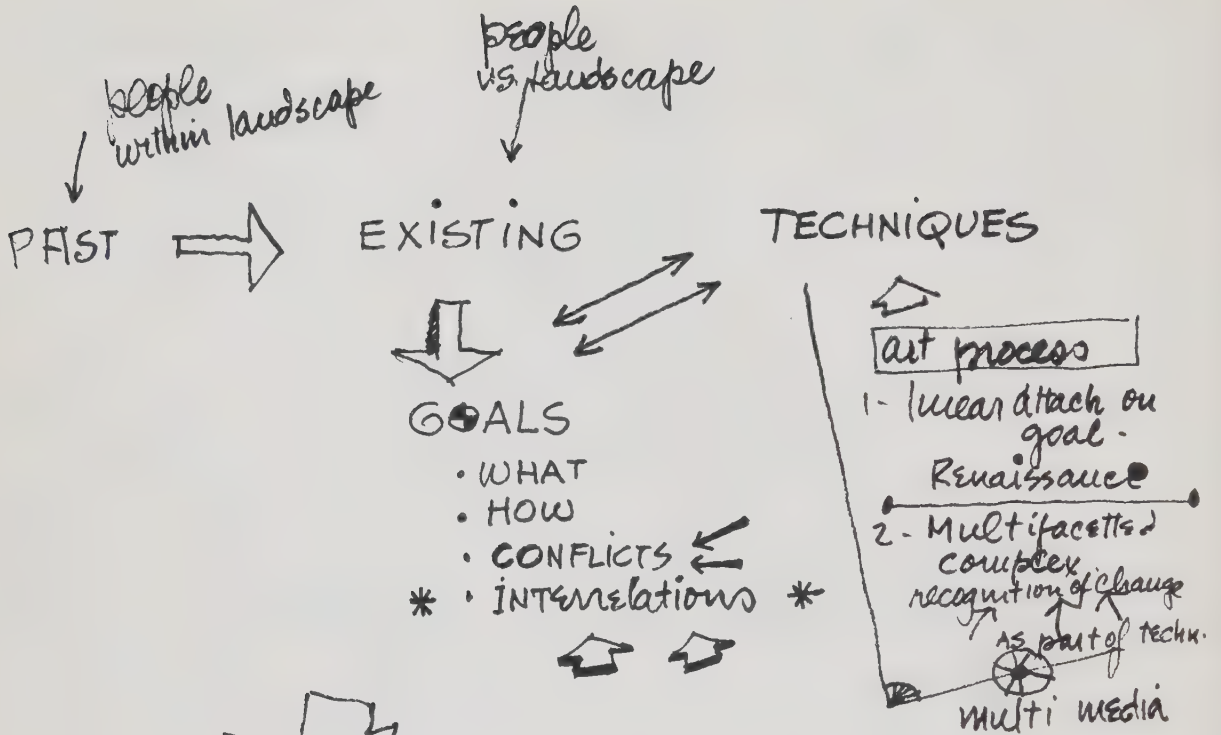 people
within landscape
people
vs. landscape
PAST
EXiSTiNG
TECHNiQUES
GOALS
• WHAT
• HOW
• CONFLICTS
* • INTERRElations *
art process
1 - linear attack on
goal.
Renaissance
2 - Multifacetted
complex
recognition of change
As part of techn.
multi media